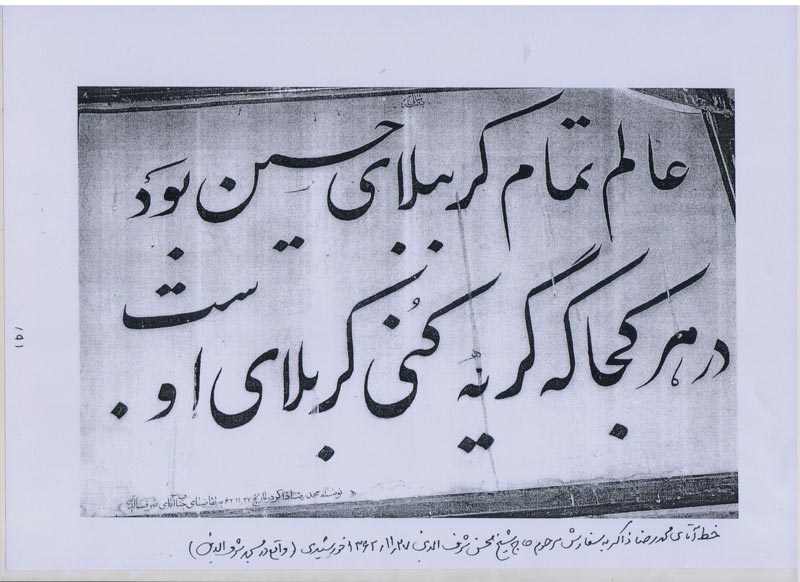 بسمه تعالی
عالم تمام کربلای حسین بود
در هر کجا که گریه کنی کربلای اوست
نوشته محمد رضا ذاکر در تاریخ ۶۲/۱۱/۲۷ به تقاضای جناب آقای شرف الدین
خط آقای محمد رضا ذاکر به سفارش مرحوم حاج شیخ محسن شرف الدین ۲۷ر۱۱ر۱۳۶۲ خورشیدی (واقع در مسجد شرف الدین)
۱۹۱